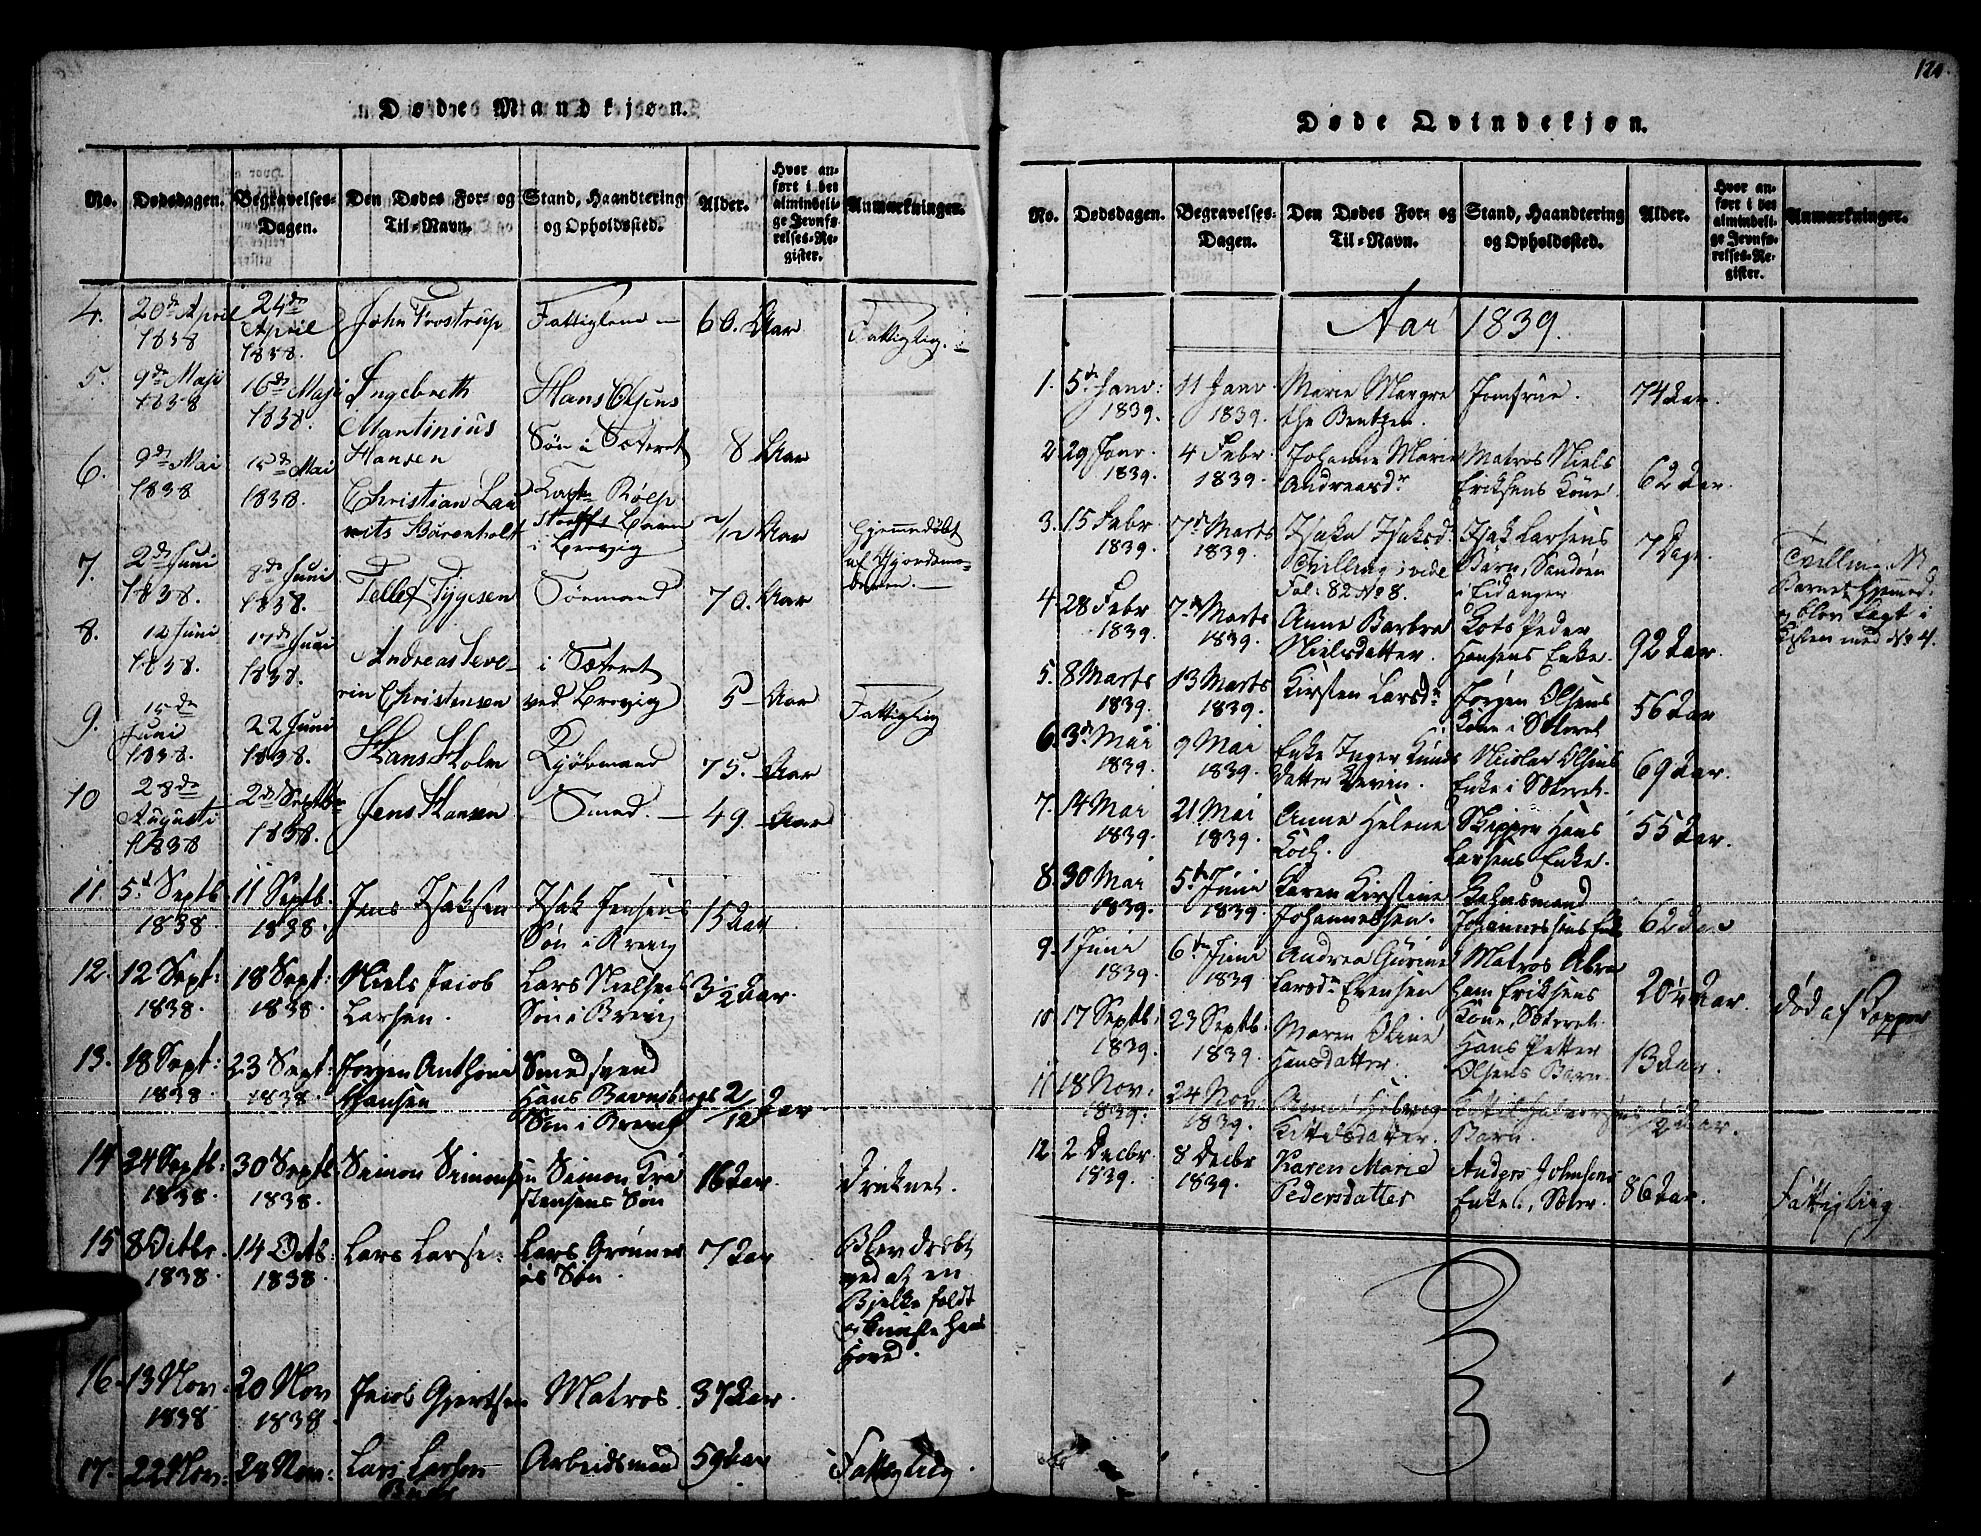 Døde Mandkjøn.
No. Dødsdagen. Begravelses-Dagen. Den Dødes For- og Til-Navn. Stand, Haandtering og Opholdssted. Alder. Hvor anført i det almindelige Jevnførelses-Register. Anmærkninger.
4. 20de April 1838 24de April 1838. John Trostrup Fattiglem 60. Aar Fattiglig.
5. 9de Maji 1838 16de Maji 1838. Ingebreth Martinius Hansen Hans Olsens Søn i Sæteret 8 Aar
6. 9de Mai 1838 15de Mai 1838 Christian Laurits Barenholt i Brevig Aar Hjemmedøbt af Gjordemoderen.
7. 2de Juni 1838. 8de Juni 1838. Tellef Tygesen Sømand 70. Aar
8. 12 Juni 1838. 17de Juni 1838. Andreas Severin Christensen i Sæteret ved Brevig 5 Aar Fattiglig
9. 15de Juni 1838. 22 Juni 1838. Hans Holm Kjøbmand 75. Aar
10 28de Augusti 1838 2de Septbr 1838. Jens Hansen Smed. 49. Aar
11. 5d Septb 1838 11 Septb. 1838. Jens Isaksen Isak Jensens Søn i Brevig 15 Aar
12. 12 Sept: 1838. 18 Sept: 1838. Niels Jacob Larsen. Lars Nielsens Søn i Brevig 3½ Aar.
13. 18 Sept: 1838 23 Sept: 1838. Jørgen Anthoni Hansen Smedsvend Hans Søn i Brevig 2/12 Aar
14 24 Septb: 1838. 30 Septb 1838. Simon Simonsen Simon Søn 16 Aar. Druknet.
15 8 Octbr. 1838 14 Octb. 1838. Lars Larsen Lars Søn. 7 Aar Blev dræbt ved at en Bjelke faldt og knuste hans Hoved.
16. 13 Nov. 1838 20 Nov 1838. Jacob Gjertsen Matros. 37 Aar.
17. 22 Nov. 28 Nov. Lars Larsen Arbeidsmand 59 Aar Fattiglig.
120.
Døde Qvindekjøn.
No. Dødsdagen. Begravelses-Dagen. Den Dødes For- og Til-Navn. Stand, Haandtering og Opholdssted. Alder. Hvor anført i det almindelige Jevnførelses-Register. Anmærkninger.
Aar 1839.
1. 5te Janv: 1839. 11 Janv 1839. Marie Margrethe Bentzen. Jomfrue. 74 Aar.
2. 29 Janv. 1839. 4 Febr. 1839. Johanne Marie Andreasdr Matros Niels Eriksens Kone 62 Aar.
3. 15 Febr. 1839. 7d Marts 1839. Isaka Isaksd. Tvilling; vide Fol: 82 No 8. Isak Larsens Barn, Sandøen i Eidanger 7 Dage. Tvilling. Barnet hjemmed. og blev lagt i Kisten med No 4.
4. 28 Febr 1839. 7de Marts 1839. Anne Barbra Nielsdatter. Lots Peder Hansens Enke. 92 Aar.
5. 8 Marts 1839. 13 Marts 1839. Kirsten Larsdr Jørgen Olsens Kone i Sæteret 56 Aar
6. 3de Mai 1839. 9 Mai 1839. Enke Inger Knudsdatter Nicolai Olsens Enke i Sæteret. 69 Aar.
7. 14 Mai 1839. 21 Mai 1839. Anne Helene Koch. Skipper Hans Larsens Enke. 55 Aar.
8. 30 Mai 1839. 5te Juni 1839. Karen Kirstine Johannessen. Johannessens Enke 62 Aar
9. 1 Juni 1839. 6te Juni 1839. Andrea Gurine Larsdr Evensen Matros Abraham Eriksens Kone, Sæteret. 20½ Aar. død af Kopper
10 17 Septb. 1839. 23 Septb. 1839. Maren Oline Hansdatter. Hans Petter Olsens Barn. 13 Aar.
11 18 Nov. 1839. 24 Nov. 1839. Anne Hedevig Kittilsdatter. Kittil Halvorsens Barn. Aar.
12. 2 Decbr 1839. 8 Decbr 1839. Karen Marie Pedersdatter Anders Johnsens Enke, Sæter. 86 Aar. Fattiglig